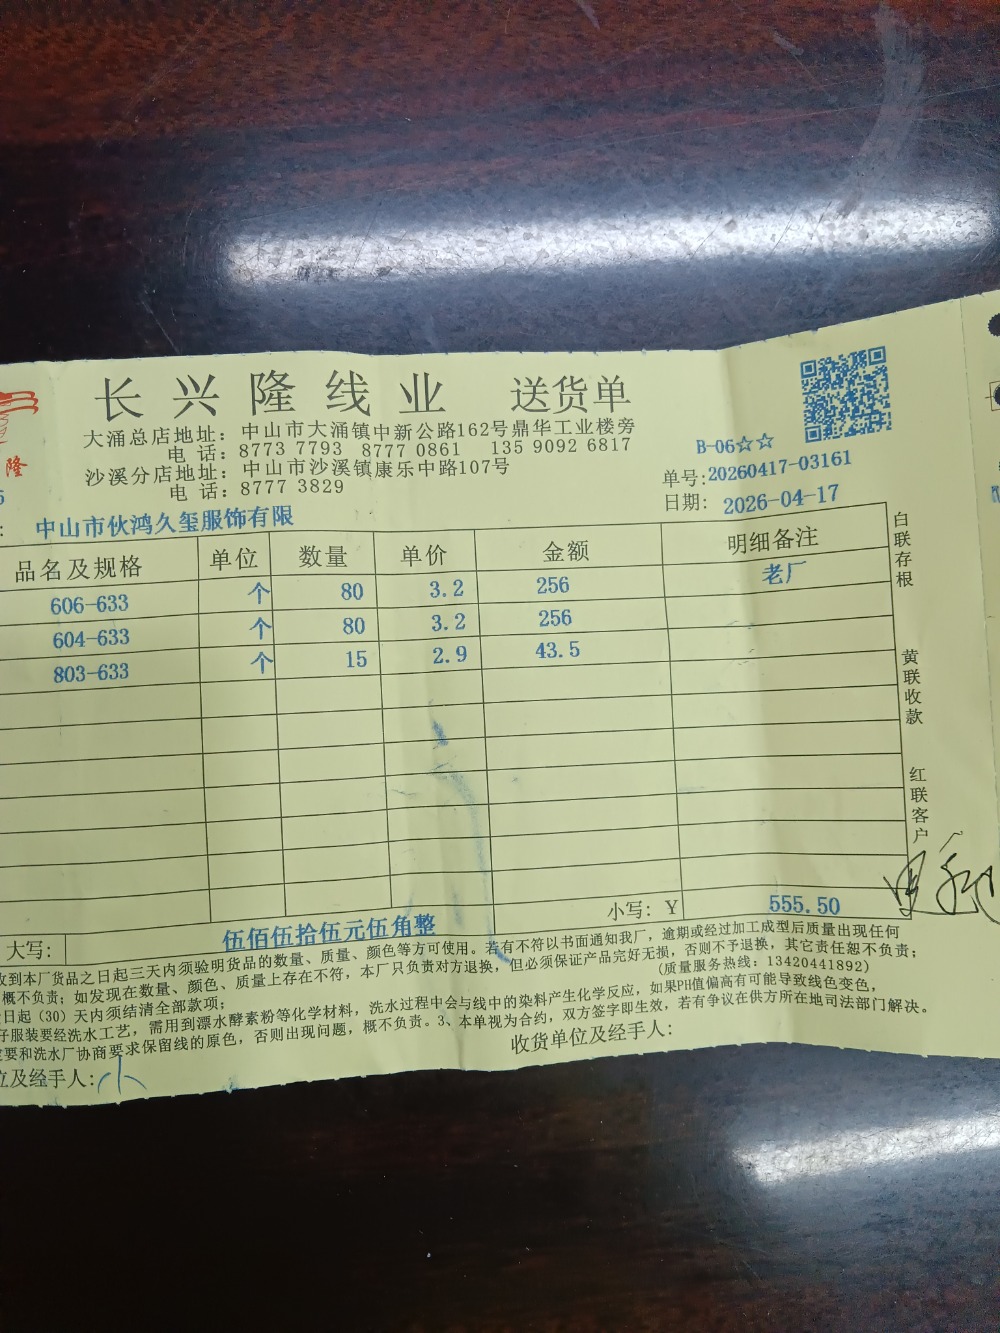 长兴隆线业 送货单
大涌总店地址：中山市大涌镇中新公路162号鼎华工业楼旁
电 话：8773 7793 8777 0861 135 9092 6817
沙溪分店地址：中山市沙溪镇康乐中路107号
电 话：8777 3829
隆
B-06☆☆
单号:20260417-03161
日期: 2026-04-17
: 中山市伙鸿久玺服饰有限
品名及规格 单位 数量 单价 金额 明细备注
606-633 个 80 3.2 256 老厂
604-633 个 80 3.2 256
803-633 个 15 2.9 43.5
白联存根
黄联收款
红联客户
小写: Y 555.50
大写: 伍佰伍拾伍元伍角整
收到本厂货品之日起三天内须验明货品的数量、质量、颜色等方可使用。若有不符以书面通知我厂，逾期或经过加工成型后质量出现任何
概不负责；如发现在数量、颜色、质量上存在不符，本厂只负责对方退换，但必须保证产品完好无损，否则不予退换，其它责任恕不负责；
日起（30）天内须结清全部款项；
(质量服务热线: 13420441892)
子服装要经洗水工艺，需用到漂水酵素粉等化学材料，洗水过程中会与线中的染料产生化学反应，如果PH值偏高有可能导致线色变色，
要和洗水厂协商要求保留线的原色，否则出现问题，概不负责。3、本单视为合约，双方签字即生效，若有争议在供方所在地司法部门解决。
位及经手人: 小
收货单位及经手人: